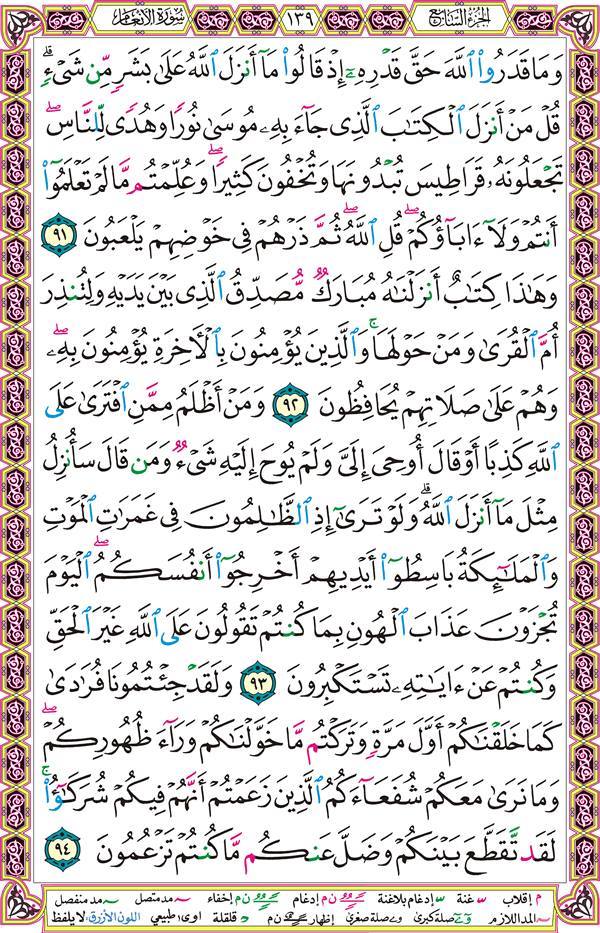 الجزء السابع
١٣٩
سورة الأنعام
وَمَا قَدَرُوا۟ ٱللَّهَ حَقَّ قَدْرِهِۦٓ إِذْ قَالُوا۟ مَآ أَنزَلَ ٱللَّهُ عَلَىٰ بَشَرٍ مِّن شَىْءٍ ۗ
قُلْ مَنْ أَنزَلَ ٱلْكِتَـٰبَ ٱلَّذِى جَآءَ بِهِۦ مُوسَىٰ نُورًا وَهُدًى لِّلنَّاسِ ۖ
تَجْعَلُونَهُۥ قَرَاطِيسَ تُبْدُونَهَا وَتُخْفُونَ كَثِيرًا ۖ وَعُلِّمْتُم مَّا لَمْ تَعْلَمُوٓا۟
أَنتُمْ وَلَآ ءَابَآؤُكُمْ ۖ قُلِ ٱللَّهُ ۖ ثُمَّ ذَرْهُمْ فِى خَوْضِهِمْ يَلْعَبُونَ ٩١
وَهَـٰذَا كِتَـٰبٌ أَنزَلْنَـٰهُ مُبَارَكٌ مُّصَدِّقُ ٱلَّذِى بَيْنَ يَدَيْهِ وَلِتُنذِرَ
أُمَّ ٱلْقُرَىٰ وَمَنْ حَوْلَهَا ۚ وَٱلَّذِينَ يُؤْمِنُونَ بِٱلْـَٔاخِرَةِ يُؤْمِنُونَ بِهِۦ ۖ
وَهُمْ عَلَىٰ صَلَاتِهِمْ يُحَافِظُونَ ٩٢ وَمَنْ أَظْلَمُ مِمَّنِ ٱفْتَرَىٰ عَلَى
ٱللَّهِ كَذِبًا أَوْ قَالَ أُوحِىَ إِلَىَّ وَلَمْ يُوحَ إِلَيْهِ شَىْءٌ وَمَن قَالَ سَأُنزِلُ
مِثْلَ مَآ أَنزَلَ ٱللَّهُ ۗ وَلَوْ تَرَىٰٓ إِذِ ٱلظَّـٰلِمُونَ فِى غَمَرَٰتِ ٱلْمَوْتِ
وَٱلْمَلَـٰٓئِكَةُ بَاسِطُوٓا۟ أَيْدِيهِمْ أَخْرِجُوٓا۟ أَنفُسَكُمُ ۖ ٱلْيَوْمَ
تُجْزَوْنَ عَذَابَ ٱلْهُونِ بِمَا كُنتُمْ تَقُولُونَ عَلَى ٱللَّهِ غَيْرَ ٱلْحَقِّ
وَكُنتُمْ عَنْ ءَايَـٰتِهِۦ تَسْتَكْبِرُونَ ٩٣ وَلَقَدْ جِئْتُمُونَا فُرَٰدَىٰ
كَمَا خَلَقْنَـٰكُمْ أَوَّلَ مَرَّةٍ وَتَرَكْتُم مَّا خَوَّلْنَـٰكُمْ وَرَآءَ ظُهُورِكُمْ ۖ
وَمَا نَرَىٰ مَعَكُمْ شُفَعَآءَكُمُ ٱلَّذِينَ زَعَمْتُمْ أَنَّهُمْ فِيكُمْ شُرَكَـٰٓؤُا۟ ۚ
لَقَد تَّقَطَّعَ بَيْنَكُمْ وَضَلَّ عَنكُم مَّا كُنتُمْ تَزْعُمُونَ ٩٤
م إقلاب س غنة س إدغام بلاغنة ن م إدغام ن م إخفاء مد متصل مد منفصل
المد اللازم صلة كبرى صلة صغرى إظهار ن م قلقلة اوى: طبيعي اللون الأزرق: لا يلفظ